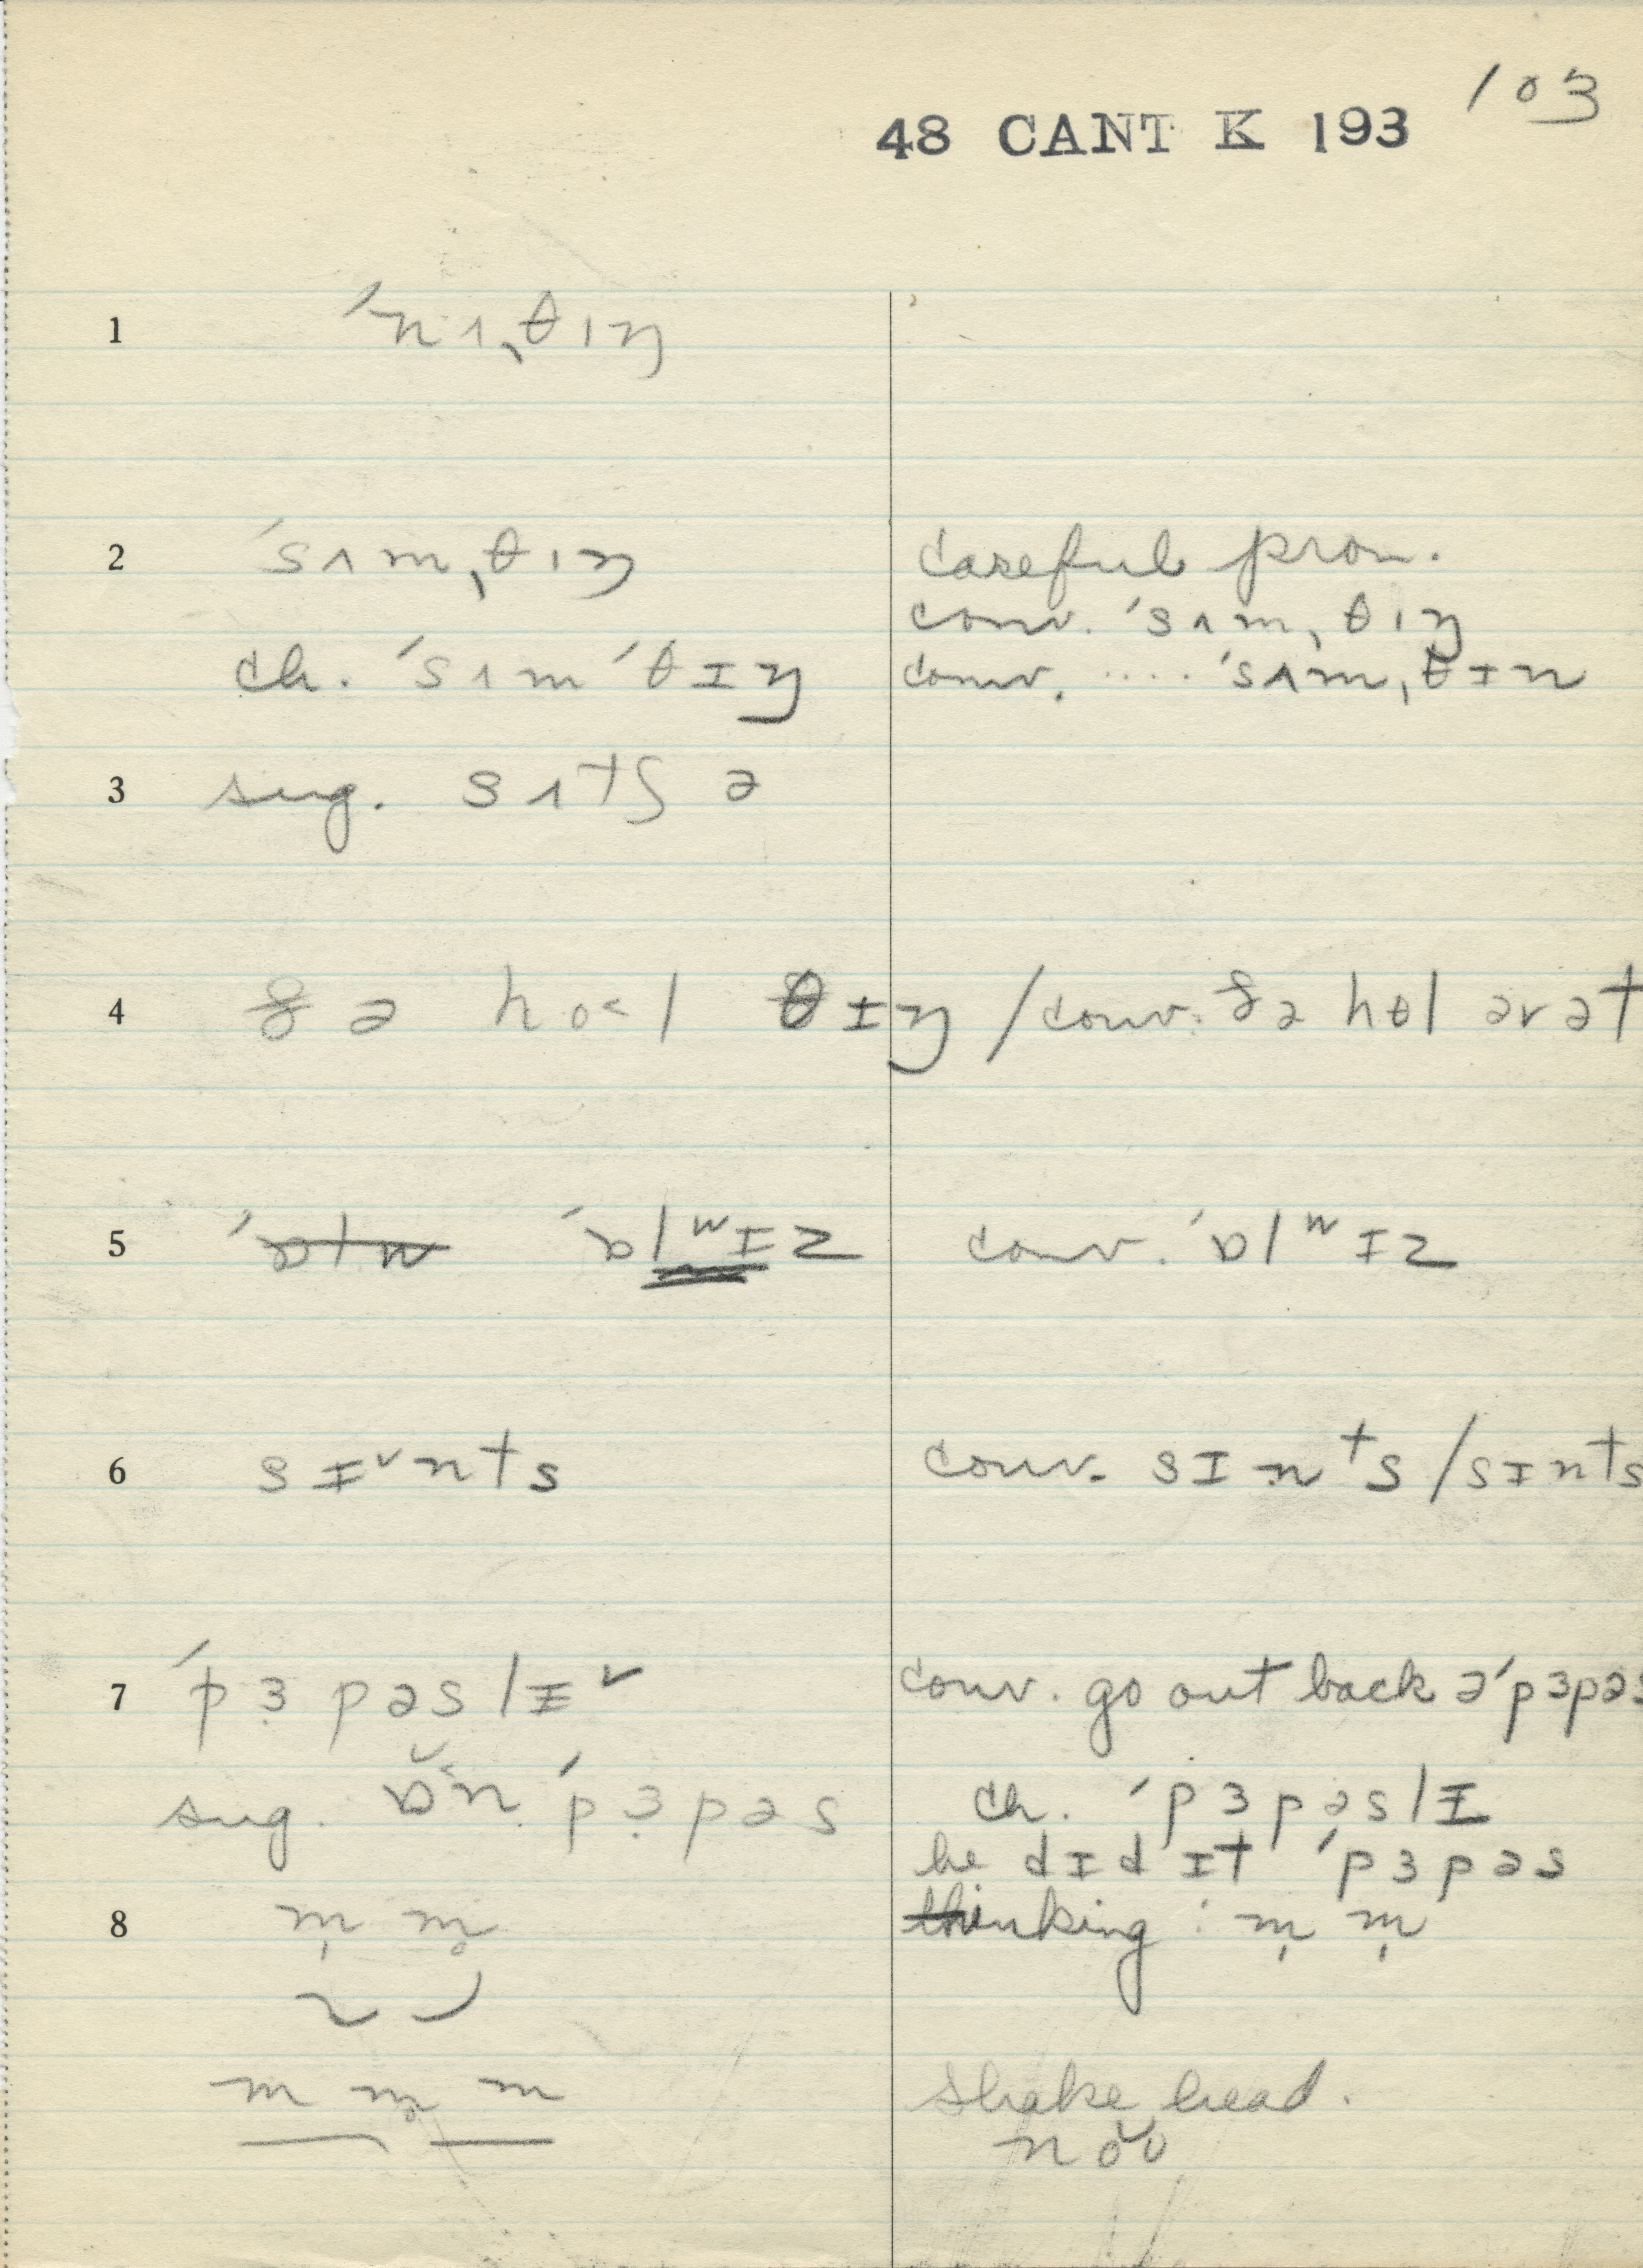 103
48 CANT K 193
1 ˈnʌˌθɪŋ
2 ˈsʌmˌθɪŋ careful pron.
conv. ˈsʌmˌθɪŋ
ch. ˈsʌmˈθɪŋ conv. ..... ˈsʌmˌθɪn
3 sug. sʌtʃ ə
4 ðə ho<l θɪŋ / conv. ðə hɵl ərət
5 ˈɒlw ˈɒlʷɪz conv. ˈɒlʷɪz
6 sɪ˅nts conv. sɪnᵗs / sɪnts
7 ˈpɜpəslɪ˅ conv. go out back əˈpɜpəs
sug. ɒ˂n ˈpɜpəs ch. ˈpɜpəslɪ
he dɪd ɪt ˈpɜpəs
8 m̩ m̥ thinking : m̩ m̩
m m̥ m shake head.
no˅ʊ